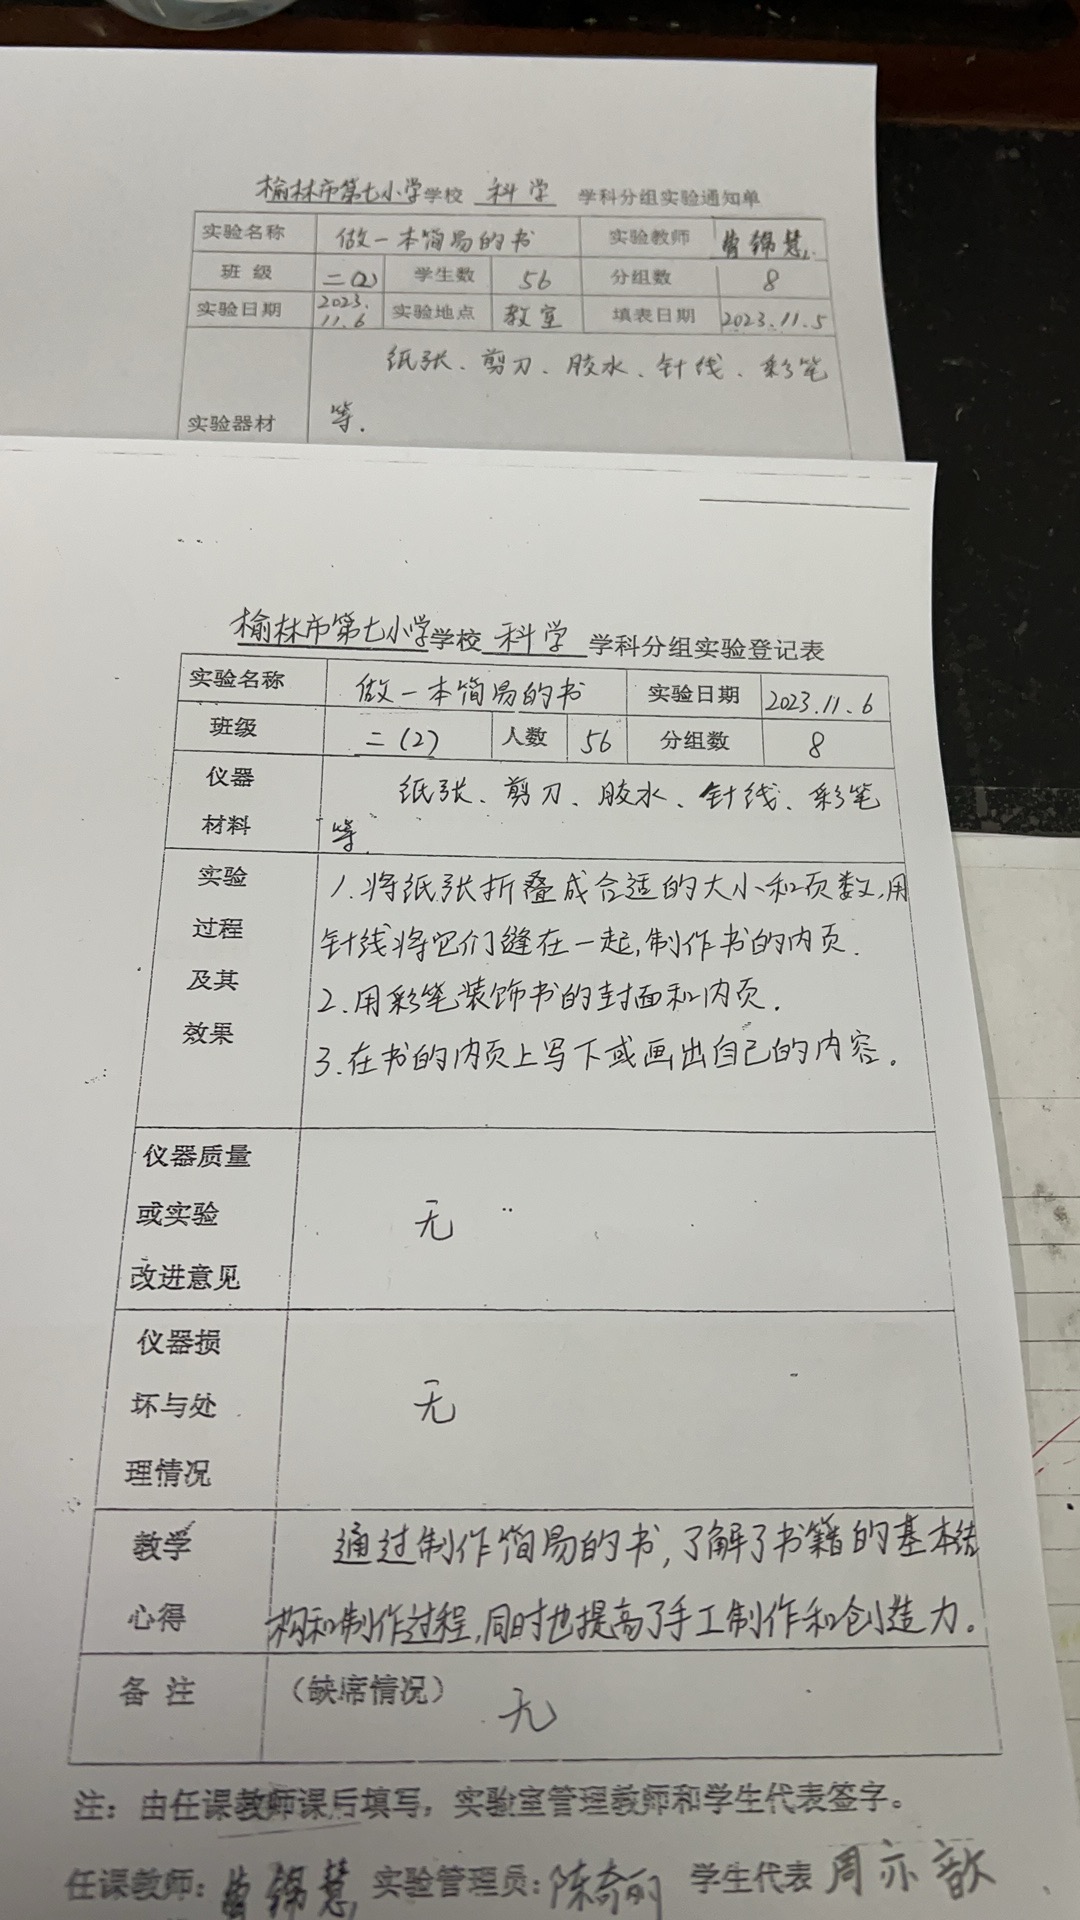 榆林市第七小学学校 科学 学科分组实验通知单
实验名称 做一本简易的书 实验教师 曾锦慧
班 级 二(2) 学生数 56 分组数 8
实验日期 2023.11.6 实验地点 教室 填表日期 2023.11.5
纸张、剪刀、胶水、针线、彩笔
实验器材 等.
榆林市第七小学学校 科学 学科分组实验登记表
实验名称 做一本简易的书 实验日期 2023.11.6
班级 二(2) 人数 56 分组数 8
仪器 纸张、剪刀、胶水、针线、彩笔
材料 等.
实验 1.将纸张折叠成合适的大小和页数,用
过程 针线将它们缝在一起,制作书的内页.
及其 2.用彩笔装饰书的封面和内页.
效果 3.在书的内页上写下或画出自己的内容。
仪器质量
或实验 无
改进意见
仪器损
坏与处 无
理情况
教学 通过制作简易的书,了解了书籍的基本结
心得 构和制作过程,同时也提高了手工制作和创造力。
备 注 (缺席情况) 无
注：由任课教师课后填写，实验室管理教师和学生代表签字。
任课教师: 曾锦慧 实验管理员: 陈奇丽 学生代表 周亦歆